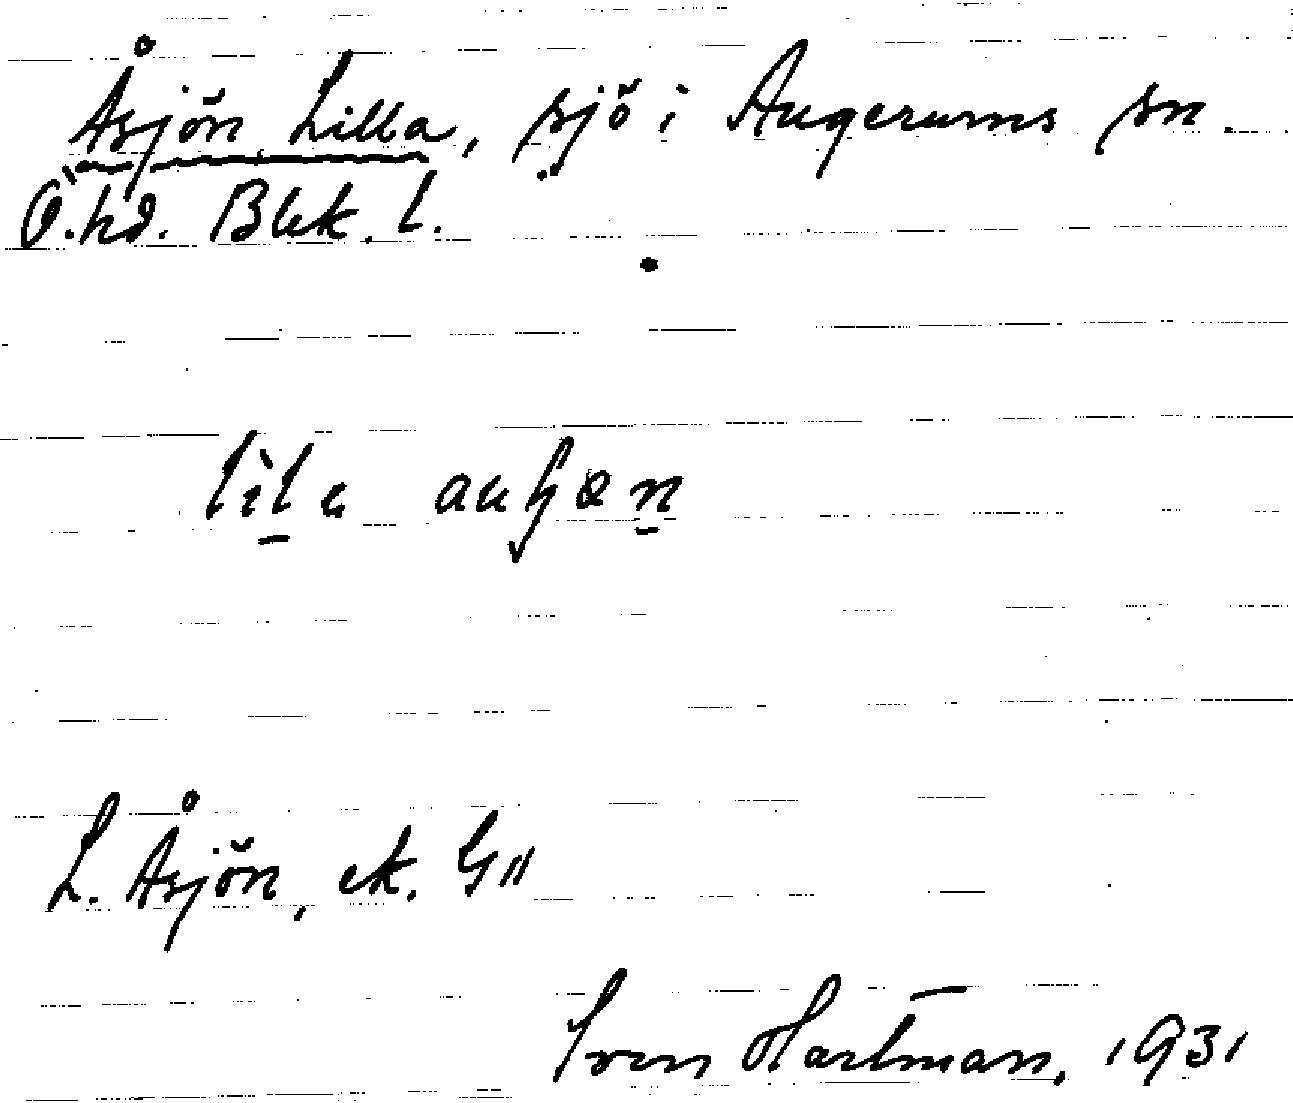 Åsjön Lilla, sjö i Augerums sn.
Ö.hd. Blek. l.
L. Åsjön, ek. G11
Sven Hartman, 1931